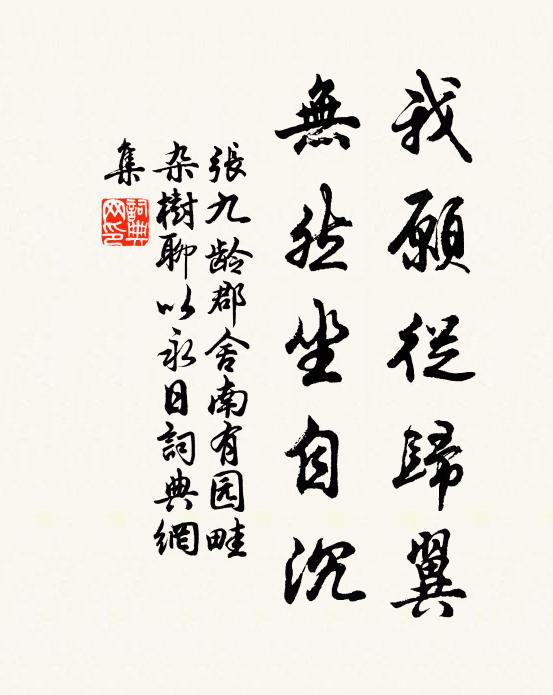 我願從歸翼
無然坐自沉
張九龄郡舍南有园畦
杂樹聊以永日詞典網
集
詞典
网印